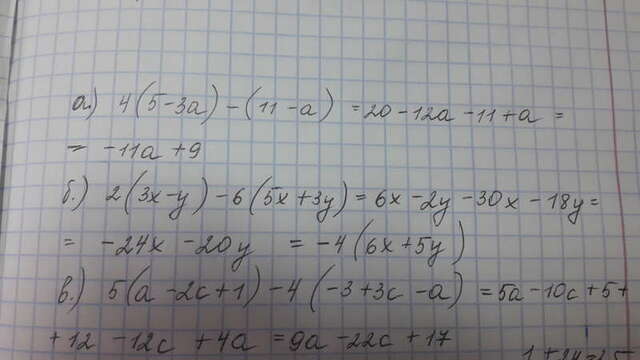 а.) 4(5-3a)-(11-a) =20-12a-11+a =
= -11a+9
б.) 2(3x-y)-6(5x+3y)=6x-2y-30x-18y=
= -24x-20y =-4(6x+5y)
в.) 5(a-2c+1)-4(-3+3c-a)=5a-10c+5+
+12-12c+4a=9a-22c+17